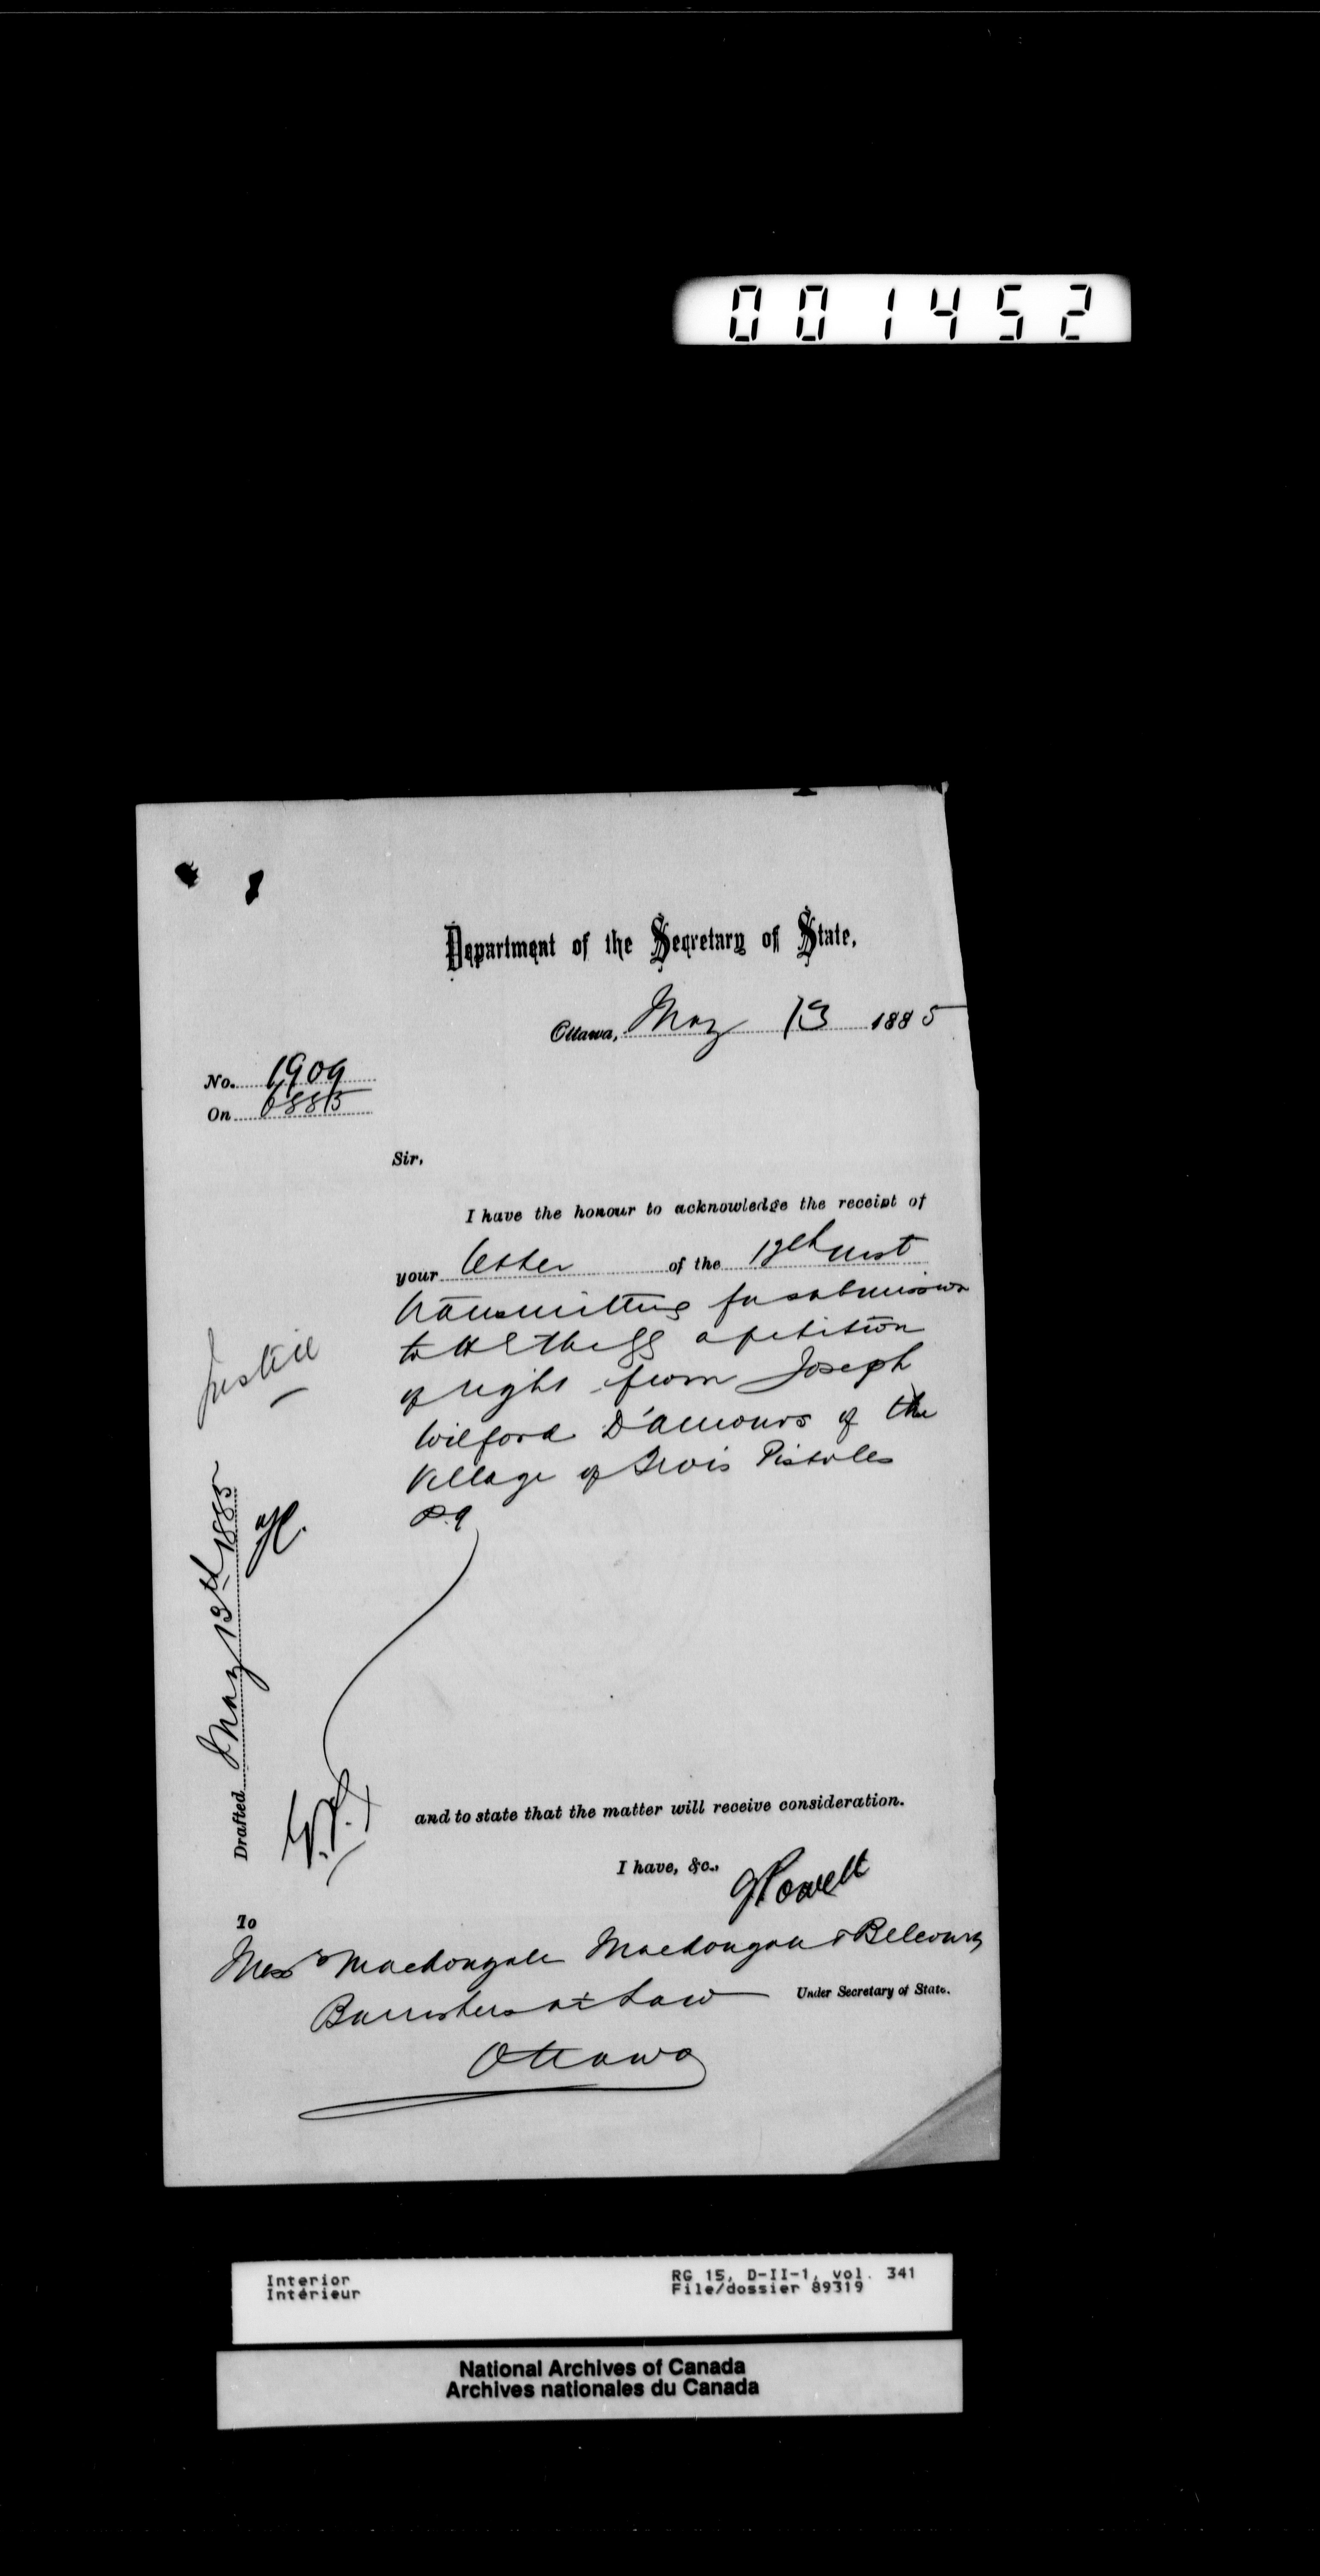 001452
Department of the Secretary of State,
Ottawa, May 13 1885
No. 1909
On 6885
Sir,
I have the honour to acknowledge the receipt of
your letter of the 12th inst
transmitting for submission
to H E the GG a petition
of right from Joseph
Wilford D'Amours of the
Village of Trois Pistoles
P.Q
Justice
Drafted May 13th 1885
and to state that the matter will receive consideration.
I have, &c.,
G Powell
To
Messrs Macdougall Macdougall & Belcourt
Under Secretary of State.
Barristers at Law
Ottawa
Interior
Intérieur
RG 15, D-II-1, vol. 341
File/dossier 89319
National Archives of Canada
Archives nationales du Canada